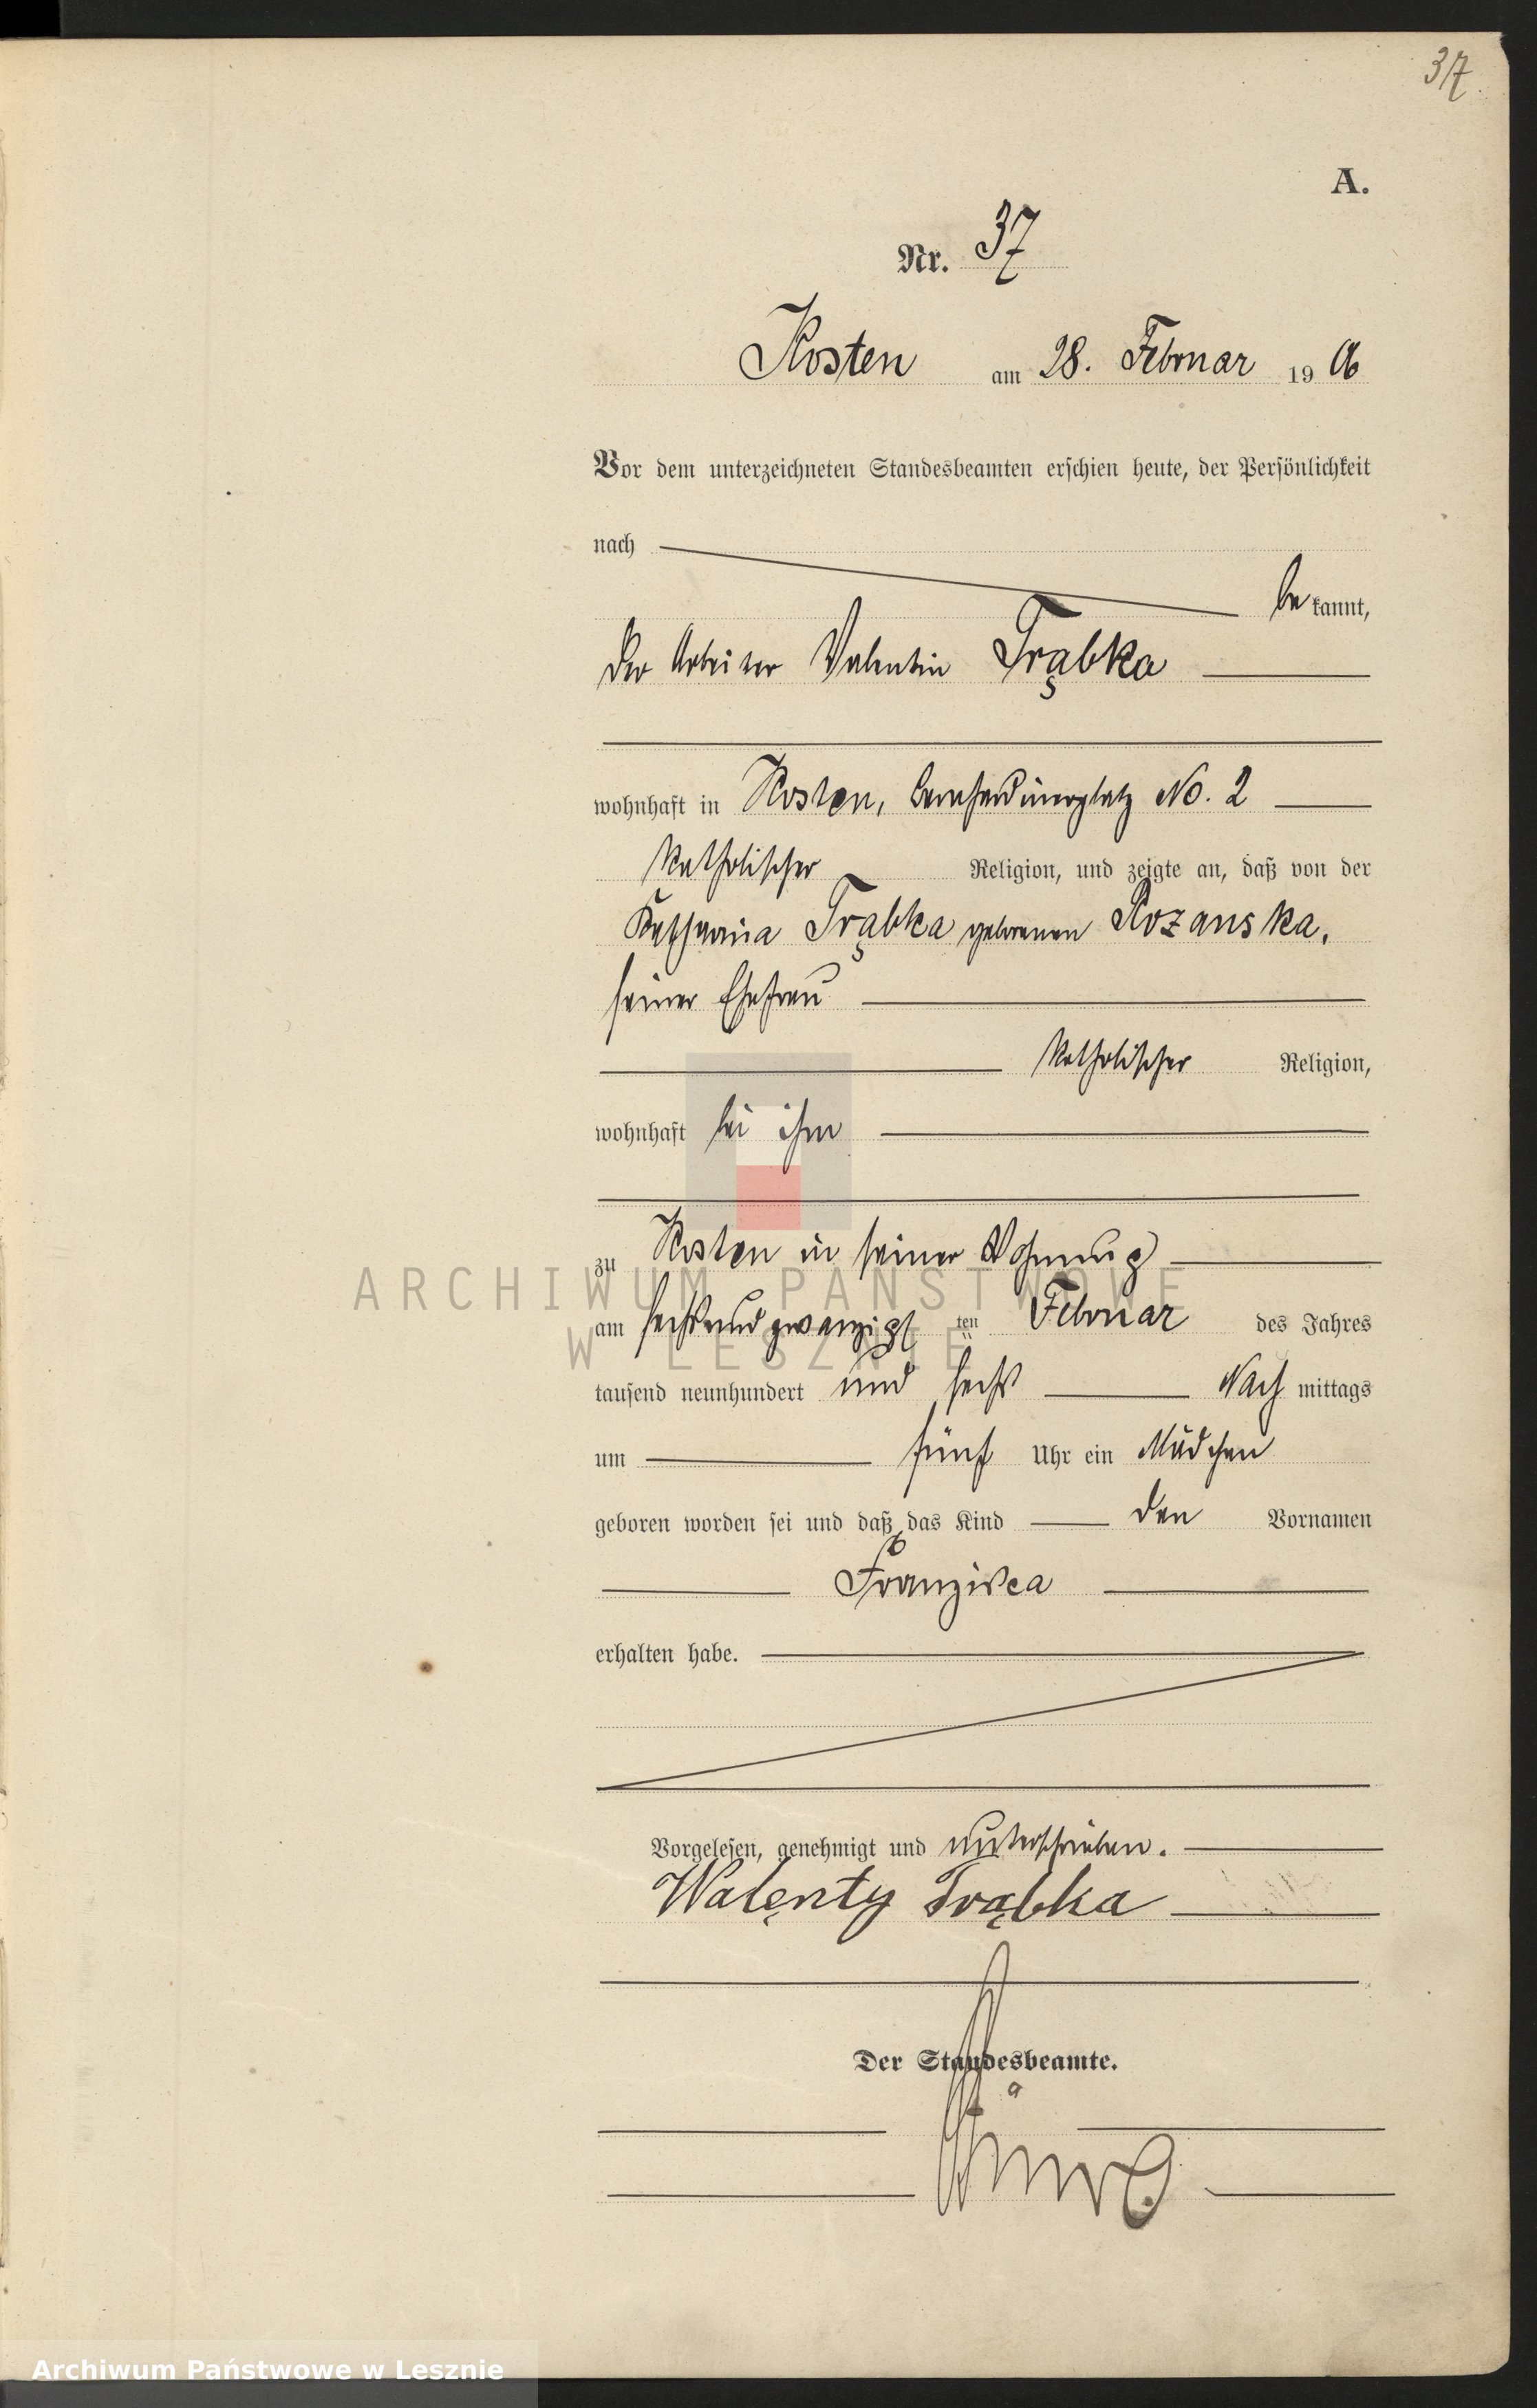 37.
A.
Nr. 37
Kosten am 28. Februar 1906
Vor dem unterzeichneten Standesbeamten erschien heute, der Persönlichkeit
nach
be kannt,
der Arbeiter Valentin Trąbka
wohnhaft in Kosten, Bernhardinerplatz No. 2
katholischer Religion, und zeigte an, daß von der
Katharina Trąbka geborenen Rozanska,
seiner Ehefrau
katholischer Religion,
wohnhaft bei ihm
zu Kosten in seiner Wohnung
ARCHIWUM PAŃSTWOWE
am sechsundzwanzigsten Februar des Jahres
W LESZNIE
tausend neunhundert und sechs Nach mittags
um fünf Uhr ein Mädchen
geboren worden sei und daß das Kind den Vornamen
Franzisca
erhalten habe.
Vorgelesen, genehmigt und unterschrieben.
Walenty Trąbka
Der Standesbeamte.
Archiwum Państwowe w Lesznie